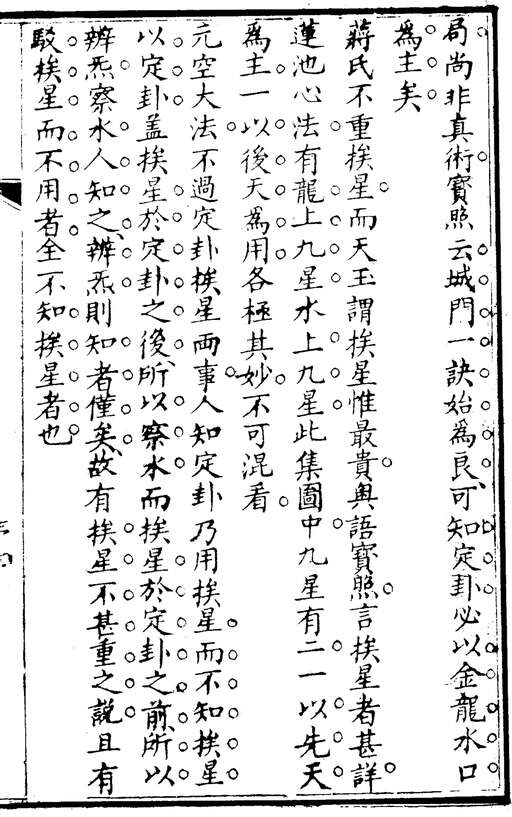 局尚非真術寶照云城門一訣始為良可知定卦必以金龍水口
為主矣
蔣氏不重挨星而天玉謂挨星惟最貴奧語寶照言挨星者甚詳
蓮池心法有龍上九星水上九星此集圖中九星有二一以先天
為主一以後天為用各極其妙不可混看
元空大法不過定卦挨星兩事人知定卦乃用挨星而不知挨星
以定卦盖挨星於定卦之後所以察水而挨星於定卦之前所以
辨炁察水人知之辨炁則知者僅矣故有挨星不甚重之說且有
駁挨星而不用者全不知挨星者也